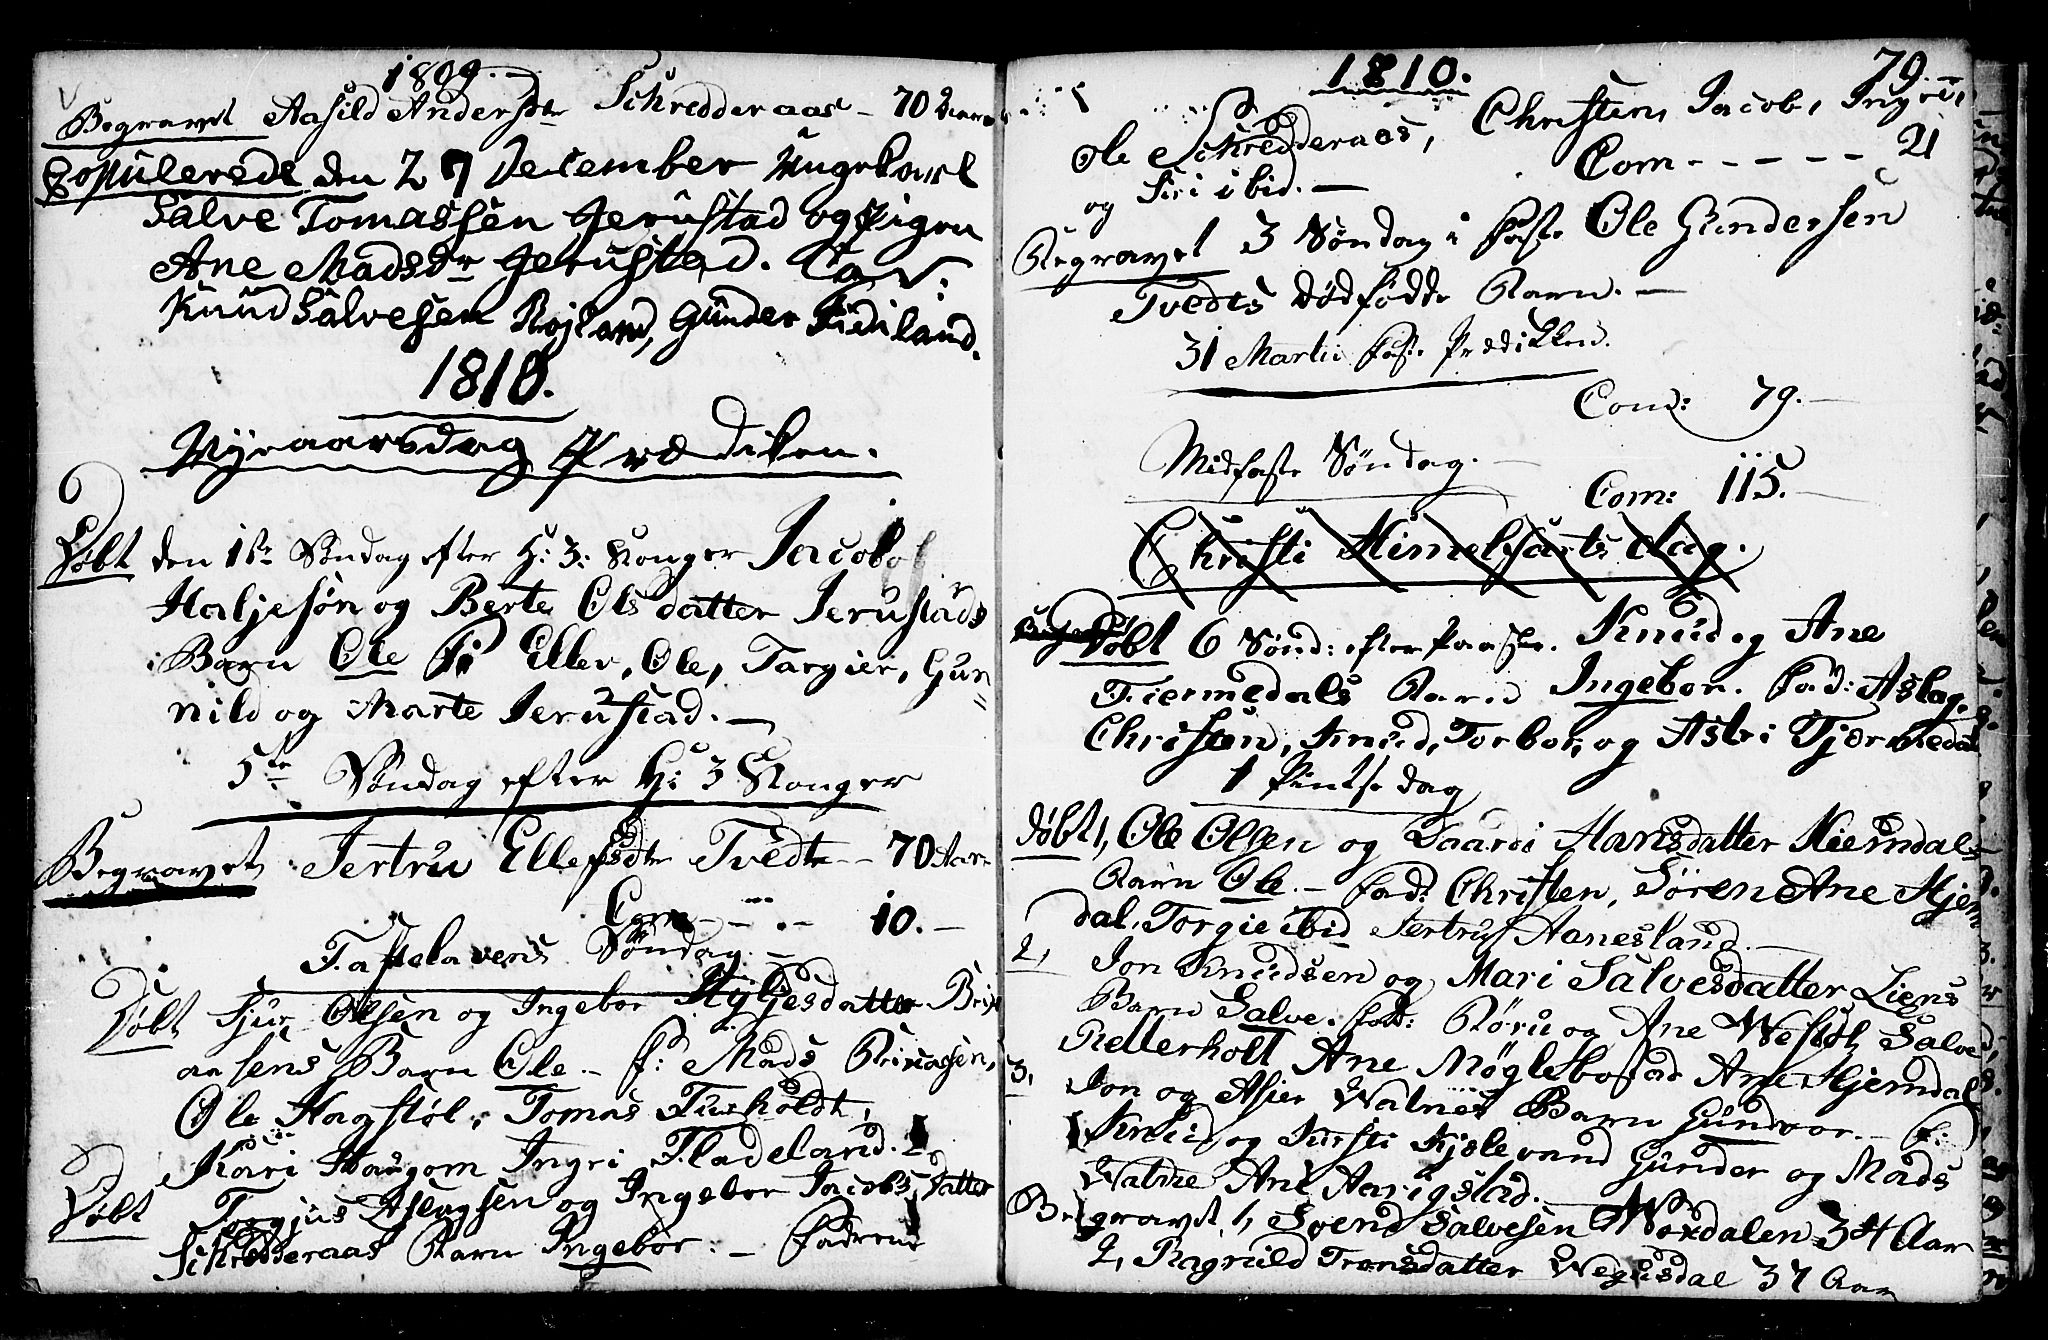 1809.
Begravet Aasild Andersdtr Schredderaas - 70 Aar
Copulerede den 27 December Ungekarl
Salve Tomassen Gerustad og Pigen
Ane Madsdr Gerustad. Cav:
Knud Salvesen Røjland, Gunder Fideland.
1810.
Nyeaarsdag Prædiken.
Døbt den 1te Søndag efter H: 3: Konger Jacob
Haljesøn og Berte Olsdatter Jerustads
Barn Ole Ellev, Ole, Targier, Gun=
nild og Marte Jerustad. —
5te Søndag efter H: 3 Konger
Begravet Jertru Ellefsdtr Tvedt - 70 Aar
Com - - - 10. —
Fastelavens Søndag. —
Døbt Sjur Olsen og Ingebor Hyljesdatter Brix
aasens Barn Ole - F: Mads Brixaasen,
Ole Hagstøl, Tomas Furholdt,
Kari Haugom Ingri Fladeland.
Døbt Torgjus Aslagsen og Ingebor Jacobsdatter
Schredderaas Barn Ingebor. - Faderne
1810. 79. —
Ole Schredderaas, Christen, Jacob, Ingri,
og Siri ibid. — Com - - - - - 21
Begravet 3 Søndag i Faste Ole Gundersen
Tvedts Dødfødde Barn. —
31 Martii Faste Prædikken.
Com: 79. —
Midfaste Søndag. —
Com: 115. —
Christi Himelfarts dag.
Døbt 6 Sønd: efter Paaske. Knud og Ane
Tiermedals Barn Ingebor. Fad: Aslag,
Christen, Knud, Torbor, og Asbri Tjermedal
1 Pintse dag
Døbt 1, Ole Olsen og Taaroi Hansdatter Hierndals
Barn Ole. - Fad: Christen, Søren Ane Hjern
dal, Torgie ibid Jertru Aanesland. —
2, Jon Knudsen og Mari Salvesdatter Liens
Barn Salve. Fad: Røru og Ane Westøl, Salve
Rellerholt Ane Møglebostad Ane Hjerndal
3, Jon og Asier Watnes Barn Gundvor. - F:
Knud og Kirsti Kjølevand Gunder og Mads
Watne Ane Aarigstad. —
Begravet 1, Svend Salvesen Woxdalen 34 Aar
2, Ragnild Tronsdatter Wegusdal 37 Aar